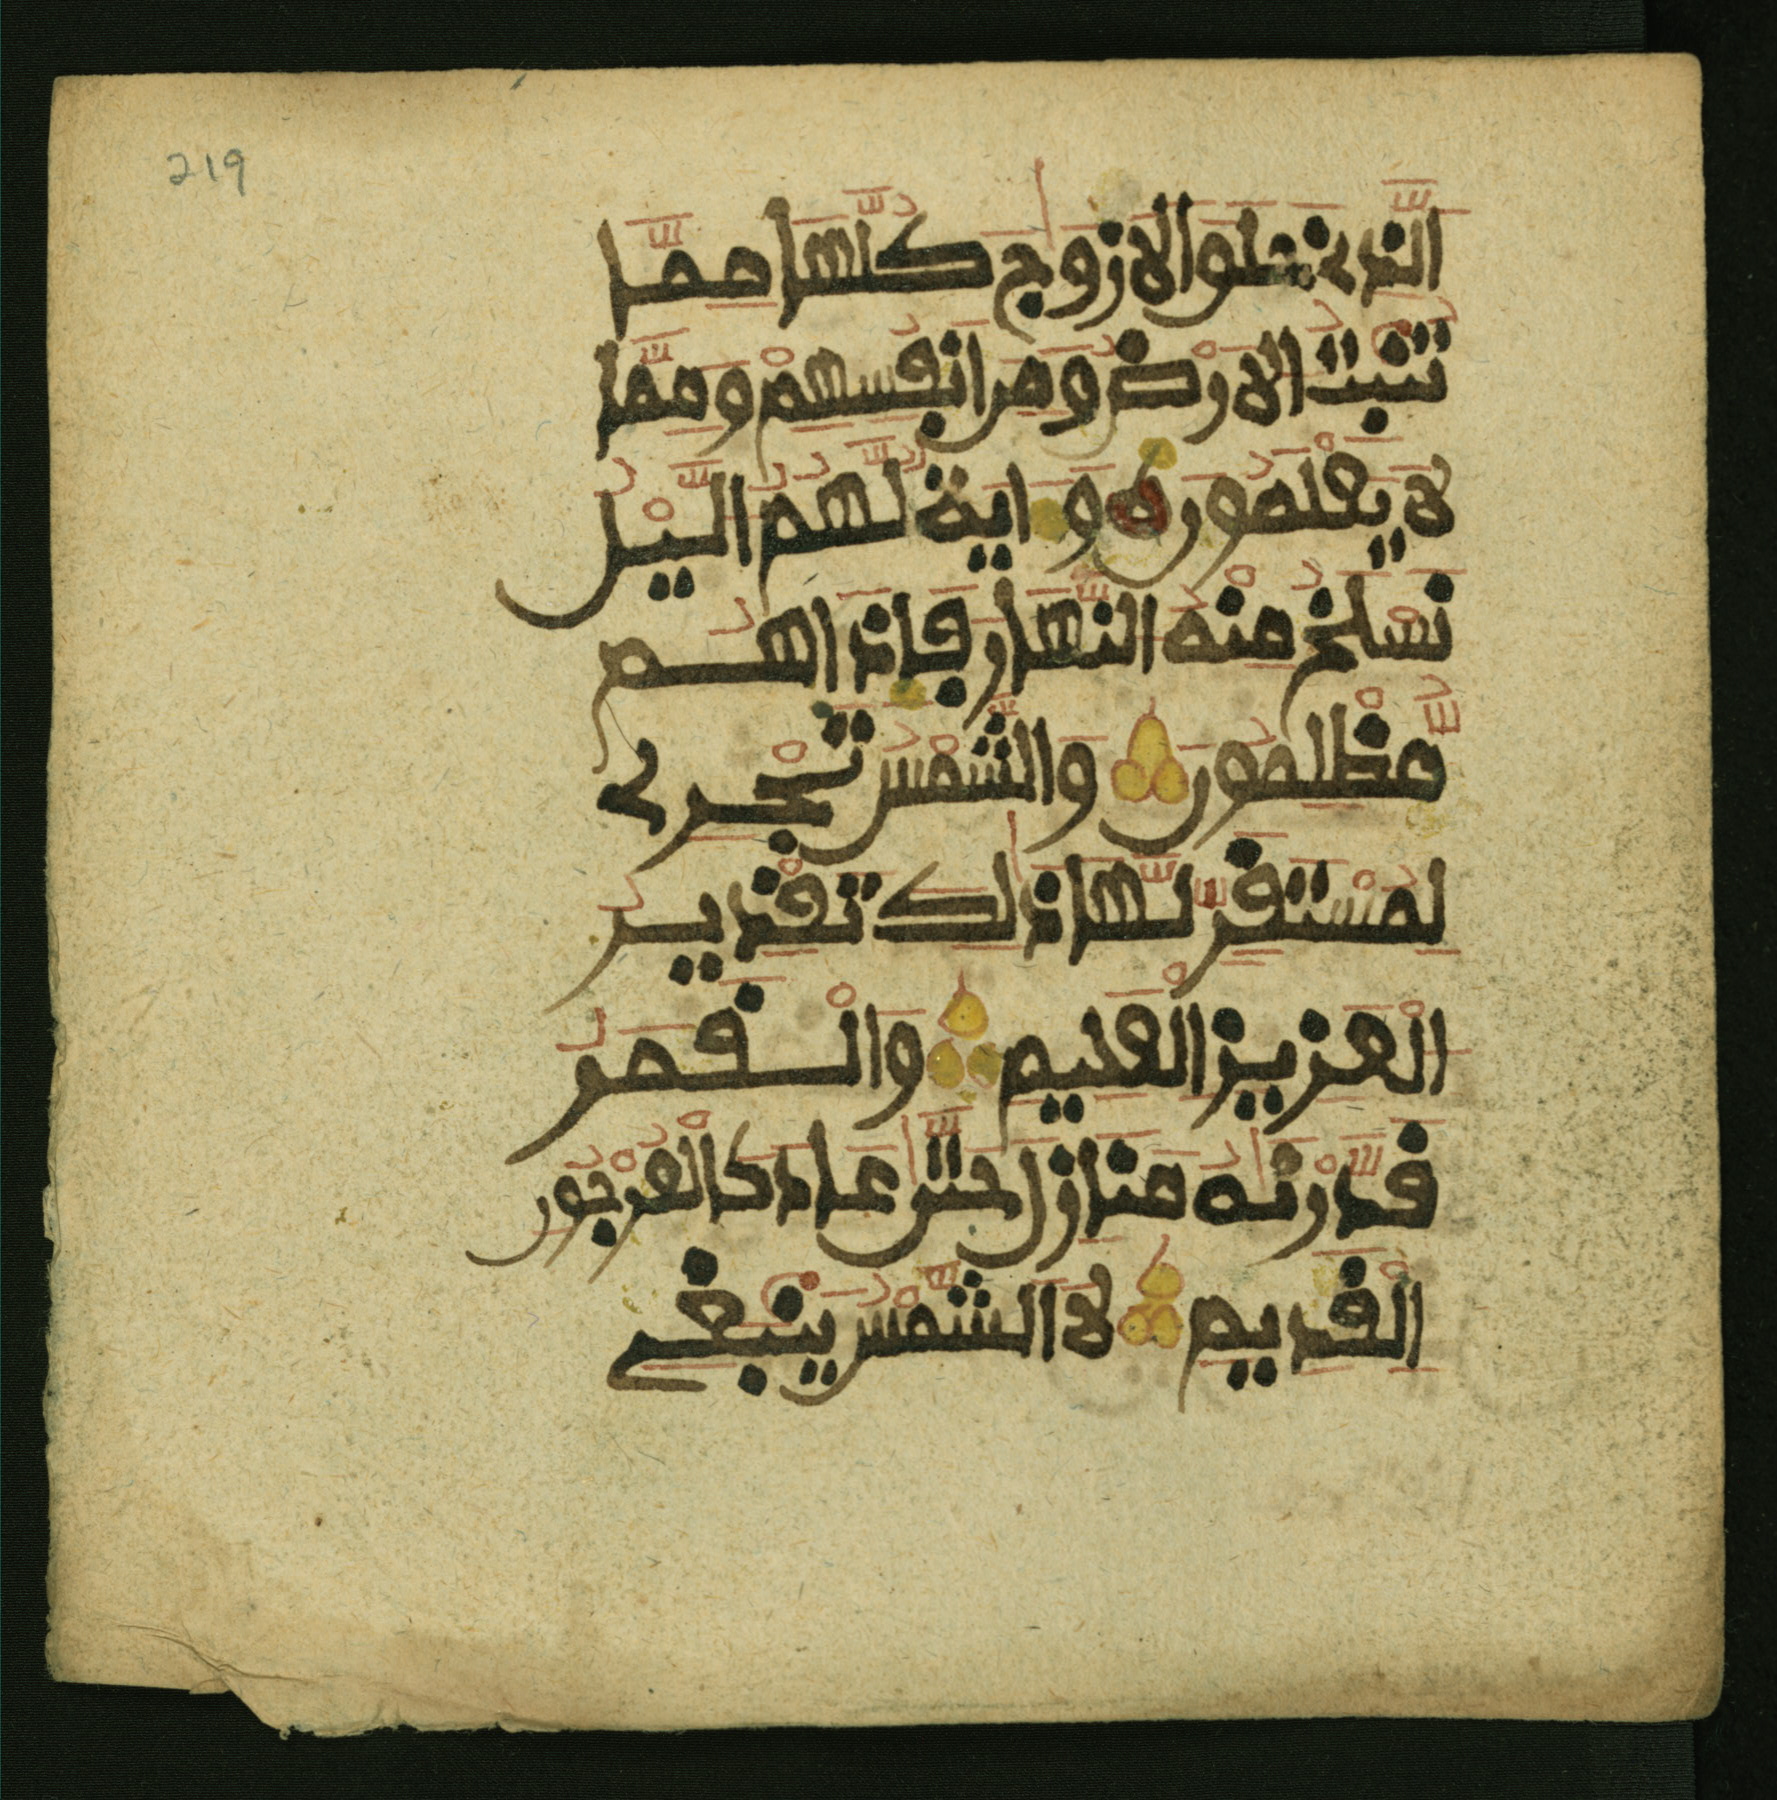 219
الَّذِي خَلَقَ الَازْوٰجَ كُلَّهَا مِمَّا
تُنۢبِتُ الَارْضُ وَمِنَ اَنفُسِهِمْ وَمِمَّا
لَا يَعْلَمُونَ وَءَايَةٌ لَّهُمُ الَّيْلُ
نَسْلَخُ مِنْهُ النَّهَارَ فَإِذَا هُم
مُّظْلِمُونَ وَالشَّمْسُ تَجْرِي
لِمُسْتَقَرٍّ لَّهَا ذٰلِكَ تَقْدِيرُ
الْعَزِيزِ الْعَلِيمِ وَالْقَمَرُ
قَدَّرْنٰهُ مَنَازِلَ حَتّٰى عَادَ كَالْعُرْجُونِ
الْقَدِيمِ لَا الشَّمْسُ يَنۢبَغِي